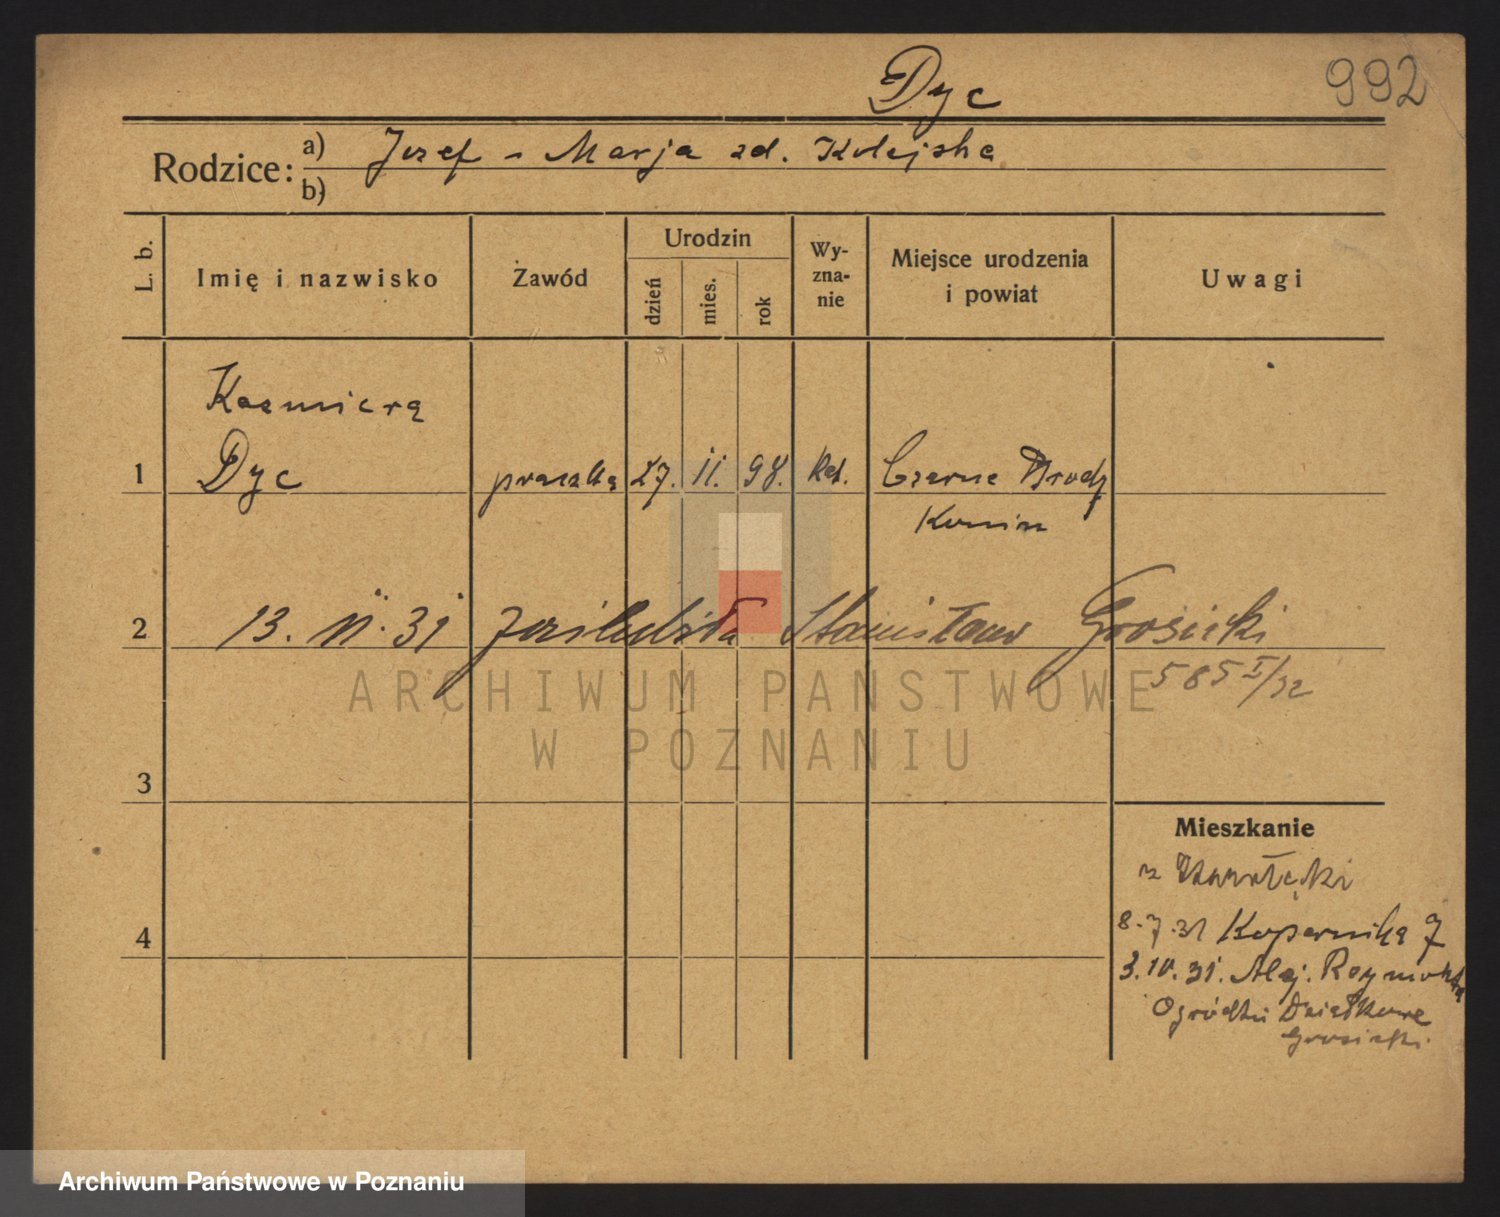 Dyc
992
Rodzice: a) Jozef - Marja zd. Kolejska
b)
L. b.
Imię i nazwisko
Zawód
Urodzin
dzień
mies.
rok
Wy-
zna-
nie
Miejsce urodzenia
i powiat
Uwagi
Kazmiera
1 Dyc praczka 27. 11. 98. kat. Czarne Brody
Konin
2 13. 11. 31 poślubiła Stanisław Grosicki
585 I/32
ARCHIWUM PAŃSTWOWE
W POZNANIU
3
Mieszkanie
z
8.7.31 Kopernika 7
4
3.10.31. Alej. Reymonta
Ogródki Działkowe
Grosicki
Archiwum Państwowe w Poznaniu